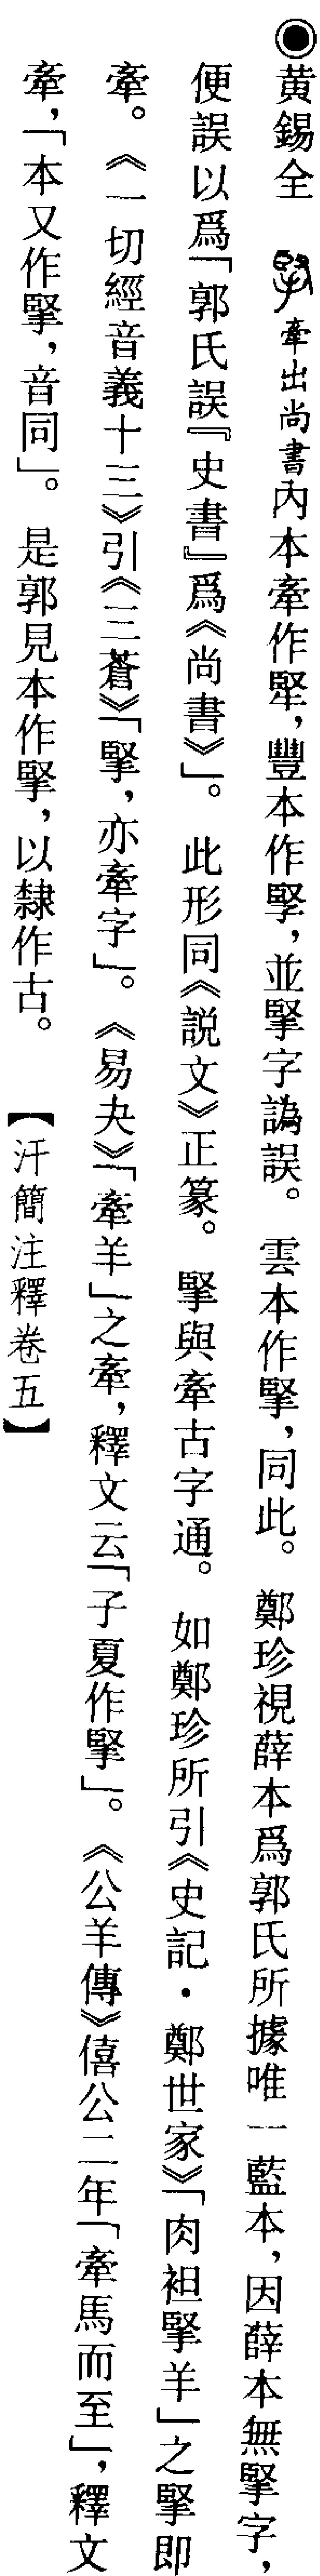 ◉黄錫全　牽出尚書内本牽作㹂，豐本作孯，並掔字譌誤。雲本作掔，同此。鄭珍視薛本爲郭氏所據唯一藍本，因薛本無掔字，
便誤以爲「郭氏誤『史書』爲《尚書》」。此形同《説文》正篆。掔與牽古字通。如鄭珍所引《史記·鄭世家》「肉袒掔羊」之掔即
牽。《一切經音義十三》引《三蒼》「掔，亦牽字」。《易夬》「牽羊」之牽，釋文云「子夏作掔」。《公羊傳》僖公二年「牽馬而至」，釋文
牽，「本又作掔，音同」。是郭見本作掔，以隸作古。【汗簡注釋卷五】